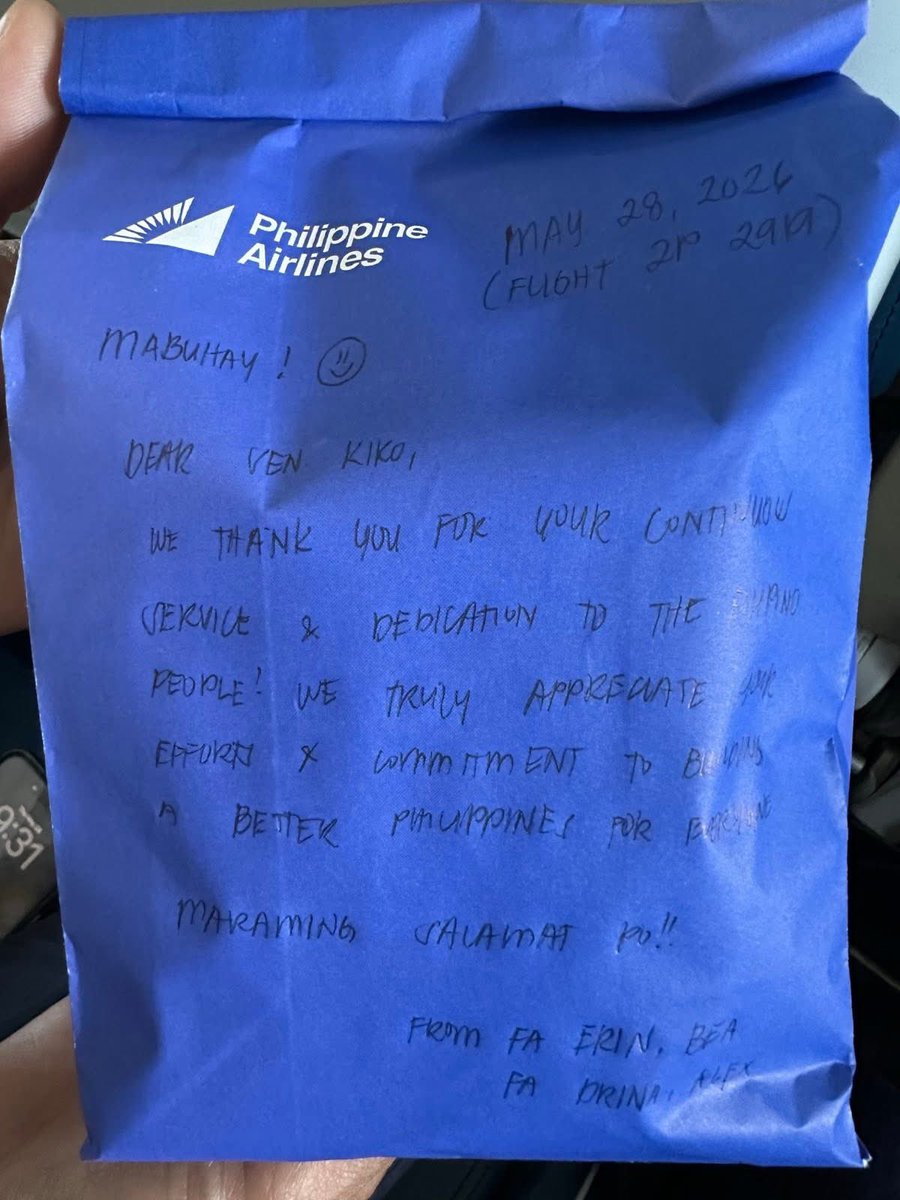 Philippine
Airlines
MAY 28, 2026
(FLIGHT 2P 2919)
MABUHAY!
DEAR SEN. KIKO,
WE THANK YOU FOR YOUR
SERVICE & DEDICATION TO THE FILIPINO
PEOPLE! WE TRULY APPRECIATE YOUR
EFFORTS & COMMITMENT TO BUILDING
A BETTER PHILIPPINES FOR EVERYONE
MARAMING SALAMAT PO!!
FROM FA ERIN, BEA
FA DRINA, ALEX
9:31